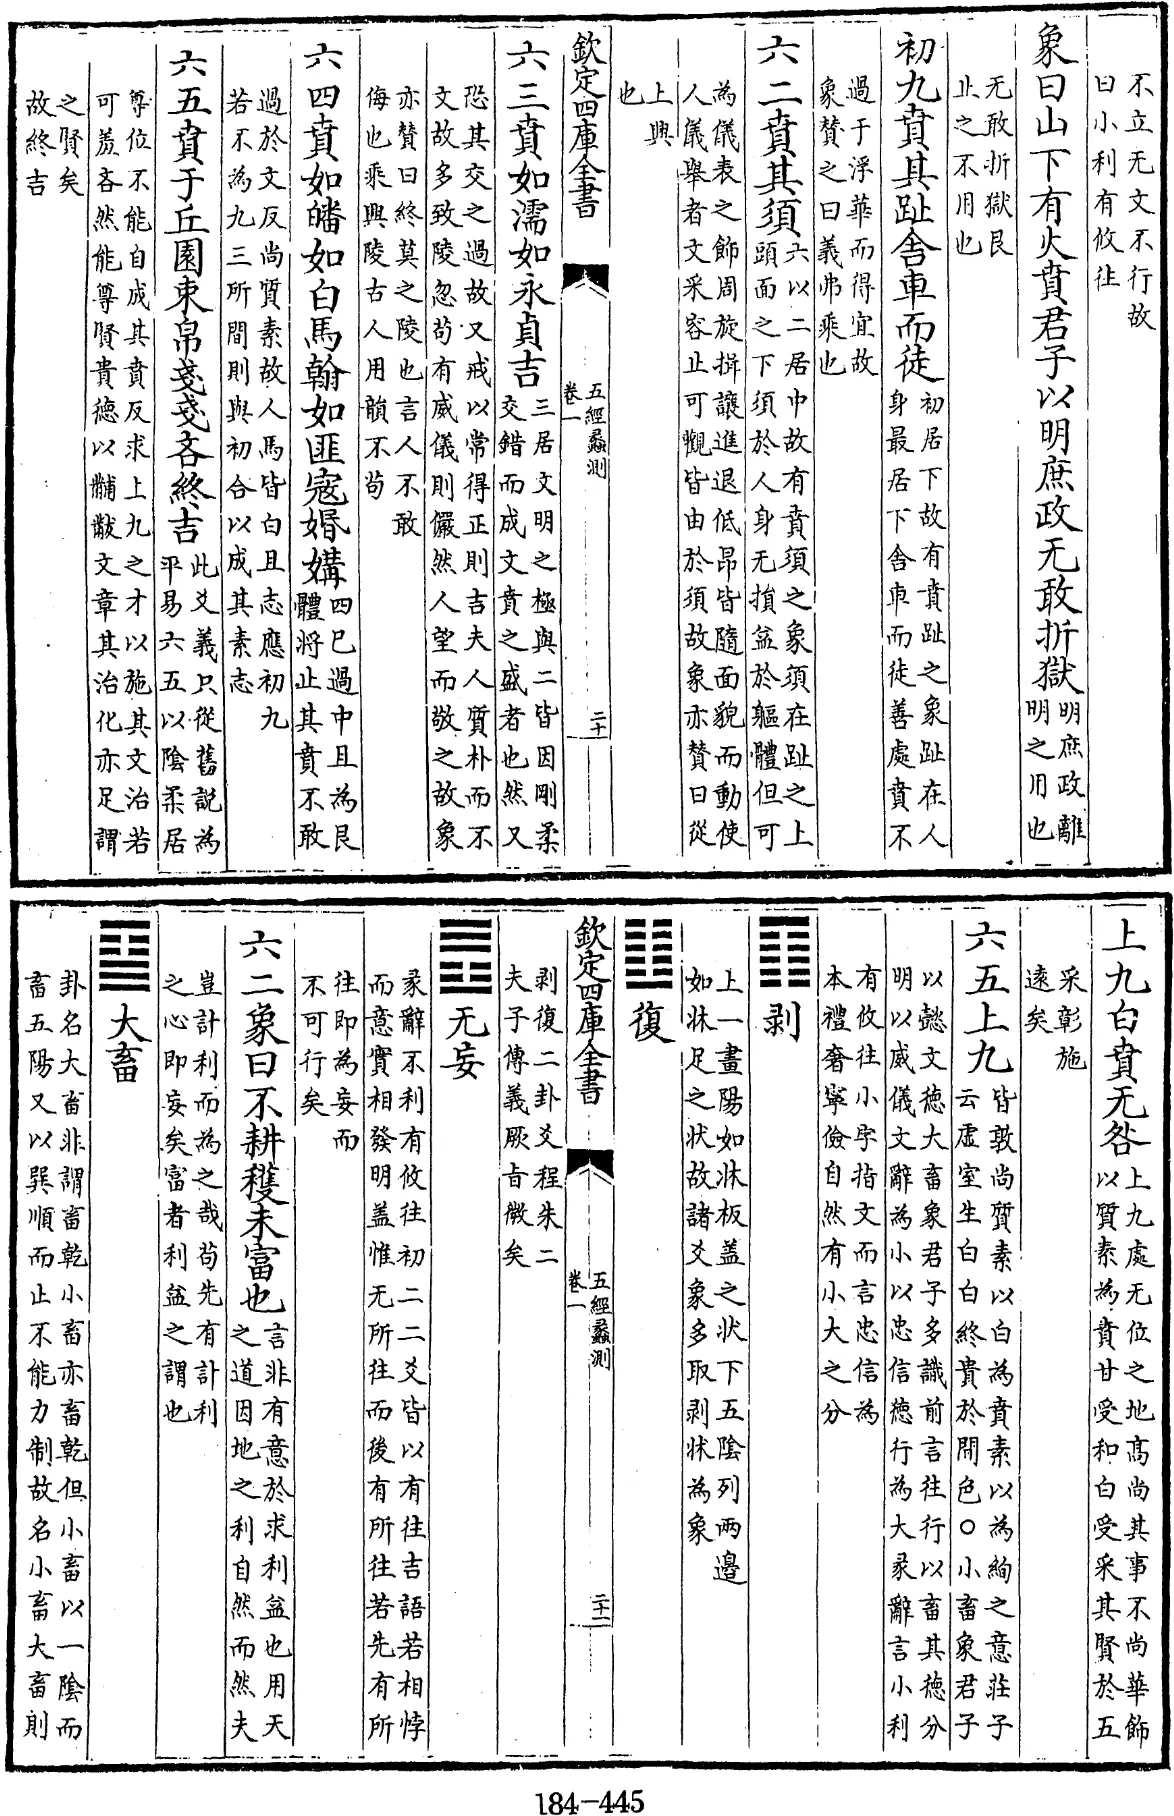 不立无文不行故
曰小利有攸往
象曰山下有火賁君子以明庶政无敢折獄明庶政離
明之用也
无敢折獄艮
止之不用也
初九賁其趾舎車而徒初居下故有賁趾之象趾在人
身最居下舎車而徒善處賁不
過于浮華而得宜故
象賛之曰義弗乘也
六二賁其須六以二居中故有賁須之象須在趾之上
頭面之下須於人身无損益於軀體但可
為儀表之飾周旋揖讓進退低昂皆隨面貌而動使
人儀舉者文采容止可觀皆由於須故象亦賛曰從
上興
也
欽定四庫全書
五經蠡測
卷一
二十
六三賁如濡如永貞吉三居文明之極與二皆因剛柔
交錯而成文賁之盛者也然又
恐其交之過故又戒以常得正則吉夫人質朴而不
文故多致陵忽茍有威儀則儼然人望而敬之故象
亦賛曰終莫之陵也言人不敢
侮也乘興陵古人用韻不茍
六四賁如皤如白馬翰如匪寇婚媾四已過中且為艮
體將止其賁不敢
過於文反尚質素故人馬皆白且志應初九
若不為九三所間則與初合以成其素志
六五賁于丘園束帛戔戔吝終吉此爻義只從舊説為
平易六五以陰柔居
尊位不能自成其賁反求上九之才以施其文治若
可羞吝然能尊賢貴德以黼黻文章其治化亦足謂
之賢矣
故終吉
上九白賁无咎上九處无位之地髙尚其事不尚華飾
以質素為賁甘受和白受采其賢於五
采彰施
遠矣
六五上九皆敦尚質素以白為賁素以為絢之意莊子
云虚室生白白終貴於間色○小畜象君子
以懿文徳大畜象君子多識前言往行以畜其徳分
明以威儀文辭為小以忠信徳行為大彖辭言小利
有攸往小字指文而言忠信為
本禮奢寧儉自然有小大之分
剥
上一畫陽如牀板盖之状下五陰列兩邉
如牀足之状故諸爻象多取剥牀為象
復
欽定四庫全書
五經蠡測
卷一
二十一
剥復二卦爻程朱二
夫子傳義厥㫖微矣
无妄
彖辭不利有攸往初二二爻皆以有往吉語若相悖
而意實相發明盖惟无所往而後有所往若先有所
往即為妄而
不可行矣
六二象曰不耕穫未富也言非有意於求利益也用天
之道因地之利自然而然夫
豈計利而為之哉茍先有計利
之心即妄矣富者利益之謂也
大畜
卦名大畜非謂畜乾小畜亦畜乾但小畜以一陰而
畜五陽又以巽順而止不能力制故名小畜大畜則
184-445